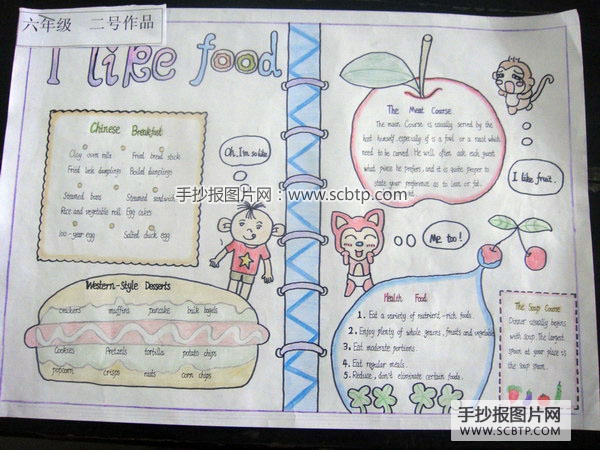 六年级 二号作品
I like food
Chinese Breakfast
Clay oven rolls Fried bread stick
Fried leek dumplings Boiled dumplings
Steamed buns Steamed sandwich
Rice and vegetable roll Egg cakes
100-year egg Salted duck egg
Oh, I'm so like
Western-Style Desserts
crackers muffins pancake bulk bagels
Cookies Pretzels tortilla potato chips
popcorn crisps nuts corn chips
The Meat Course
The main Course is usually served by the
host himself especially if is a fowl or a roast which
need to be carved. He will often ask each guest
what piece he prefers, and it is quite proper to
state your preference as to lean or fat.
I like fruit.
Me too!
Health Food
1. Eat a variety of nutrient-rich foods.
2. Enjoy plenty of whole grains, fruits and vegetable
3. Eat moderate portions.
4. Eat regular meals.
5. Reduce, don't eliminate certain foods.
The Soup Course
Dinner usually begins
with soup. The largest
spoon at your place is
the soup spoon.
手抄报图片网:www.scbtp.com
手抄报图片网
WWW.SCBTP.COM